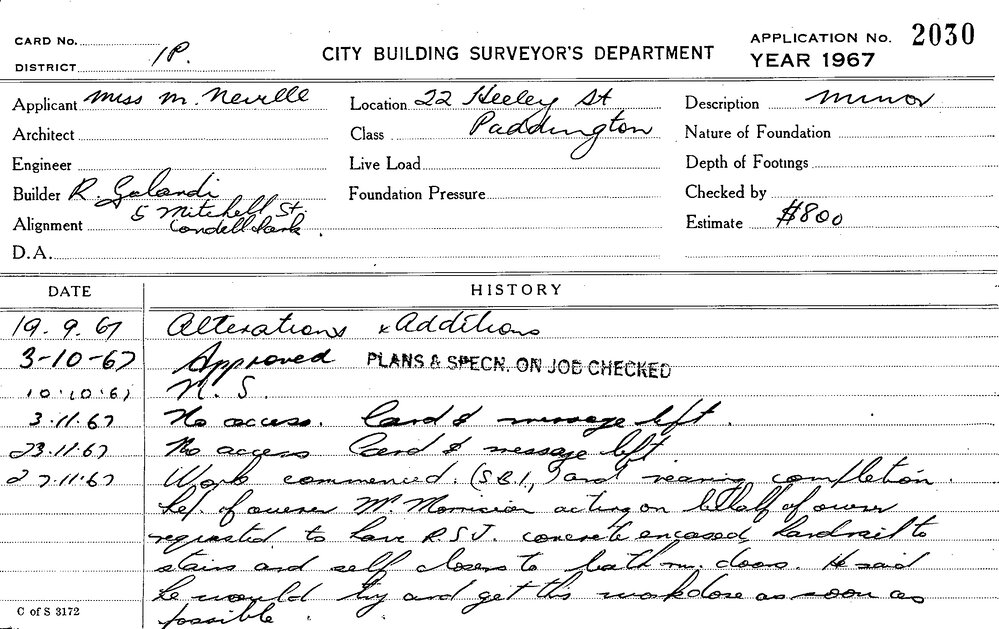 CARD No.
DISTRICT 1P.
CITY BUILDING SURVEYOR'S DEPARTMENT
APPLICATION No. 2030
YEAR 1967
Applicant Miss M. Neville
Location 22 Heeley St
Paddington
Description Minor
Architect
Class
Nature of Foundation
Engineer
Live Load
Depth of Footings
Builder R. Galandi
5 Mitchell St.
Condell Park.
Foundation Pressure
Checked by
Alignment
Estimate $800
D.A.
DATE HISTORY
19.9.67 Alterations & Additions
3-10-67 Approved PLANS & SPECN. ON JOB CHECKED
10.10.67 N.S.
3.11.67 No access. Card & message left.
23.11.67 No access Card & message left
27.11.67 Work commenced. (S.B.1,) and nearing completion.
of owner Mr acting on behalf of owner
requested to have R.S.J. concrete encased, handrail to
stairs and self closers to bath rm. doors. He said
he would try and get this work done as soon as
possible.
C of S 3172